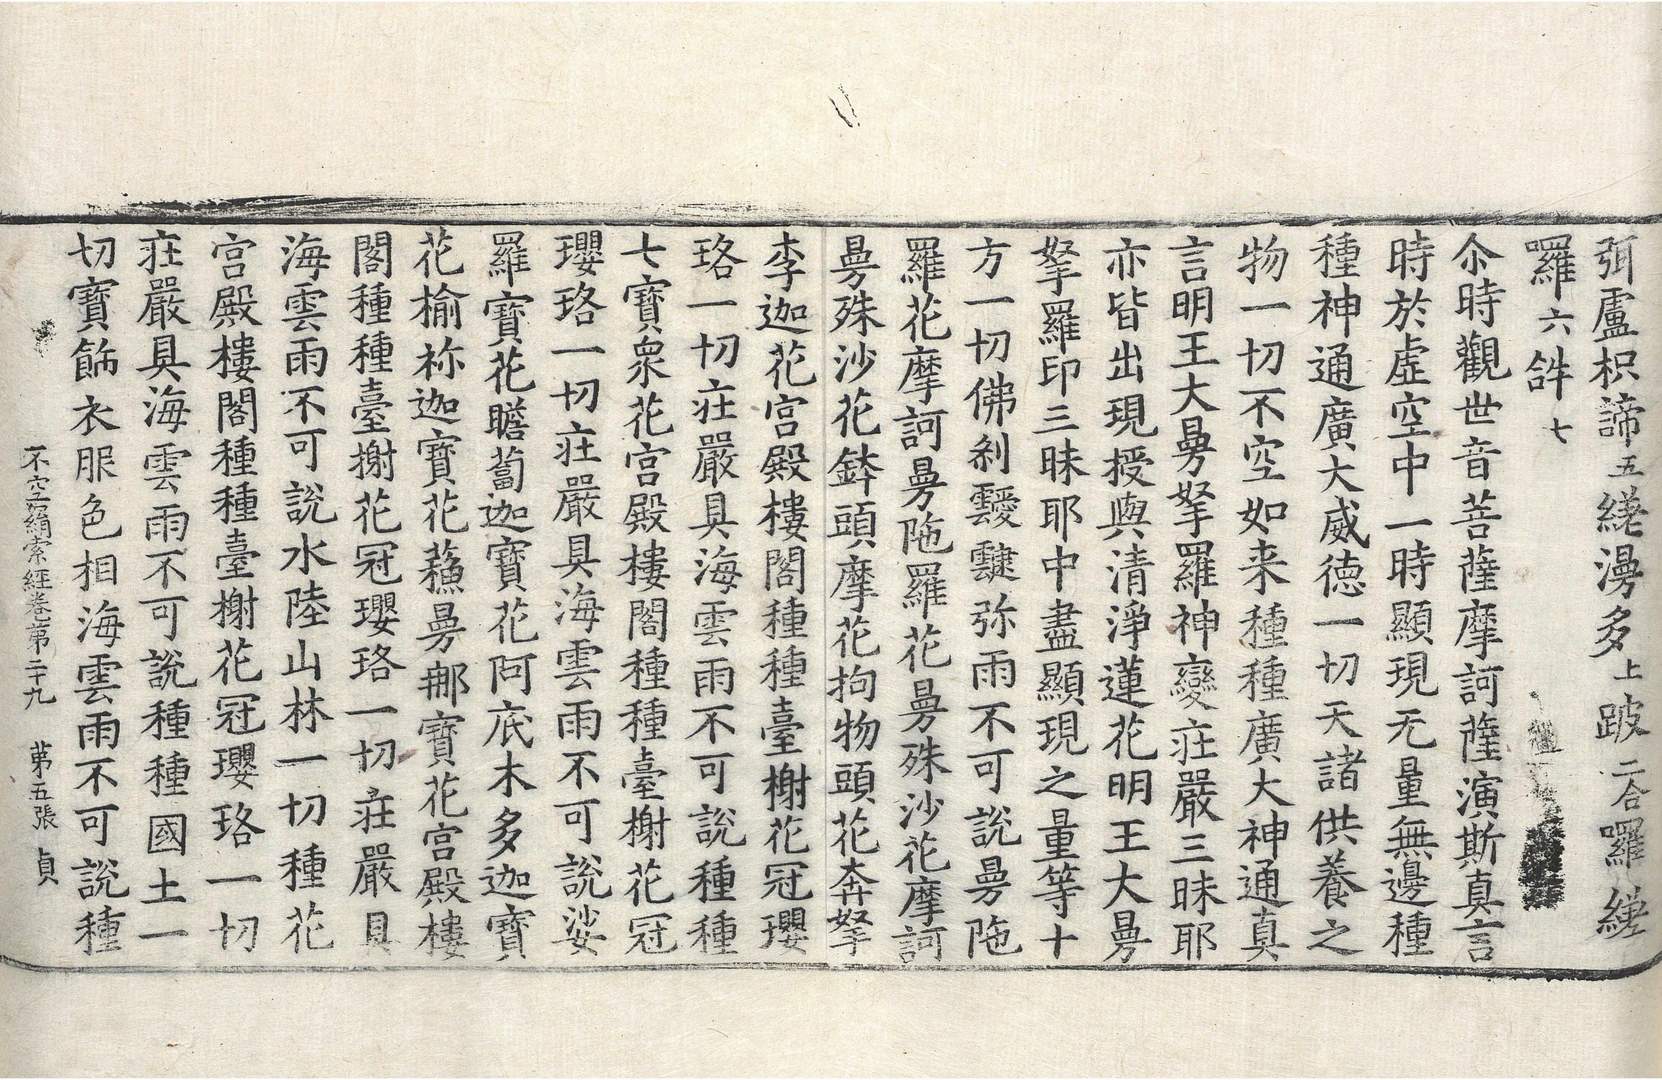 弭盧枳諦五縒漫多上跛二合囉縒
囉六𤙖七
尒時觀世音菩薩摩訶薩演斯真言
時於虛空中一時顯現无量無邊種
種神通廣大威德一切天諸供養之
物一切不空如来種種廣大神通真
言明王大曼拏羅神變莊嚴三昧耶
亦皆出現授與清淨蓮花明王大曼
拏羅印三昧耶中盡顯現之量等十
方一切佛剎靉靆弥雨不可說曼陁
羅花摩訶曼陁羅花曼殊沙花摩訶
曼殊沙花鉢頭摩花拘物頭花奔拏
李迦花宮殿樓閣種種臺榭花冠瓔
珞一切莊嚴具海雲雨不可說種種
七寶衆花宮殿樓閣種種臺榭花冠
瓔珞一切莊嚴具海雲雨不可說娑
羅寶花瞻蔔迦寶花阿底木多迦寶
花榆祢迦寶花蘓曼那寶花宮殿樓
閣種種臺榭花冠瓔珞一切莊嚴具
海雲雨不可說水陸山林一切種花
宮殿樓閣種種臺榭花冠瓔珞一切
莊嚴具海雲雨不可說種種國土一
切寶飾衣服色相海雲雨不可說種
不空罥索經卷第二十九 第五張 貞